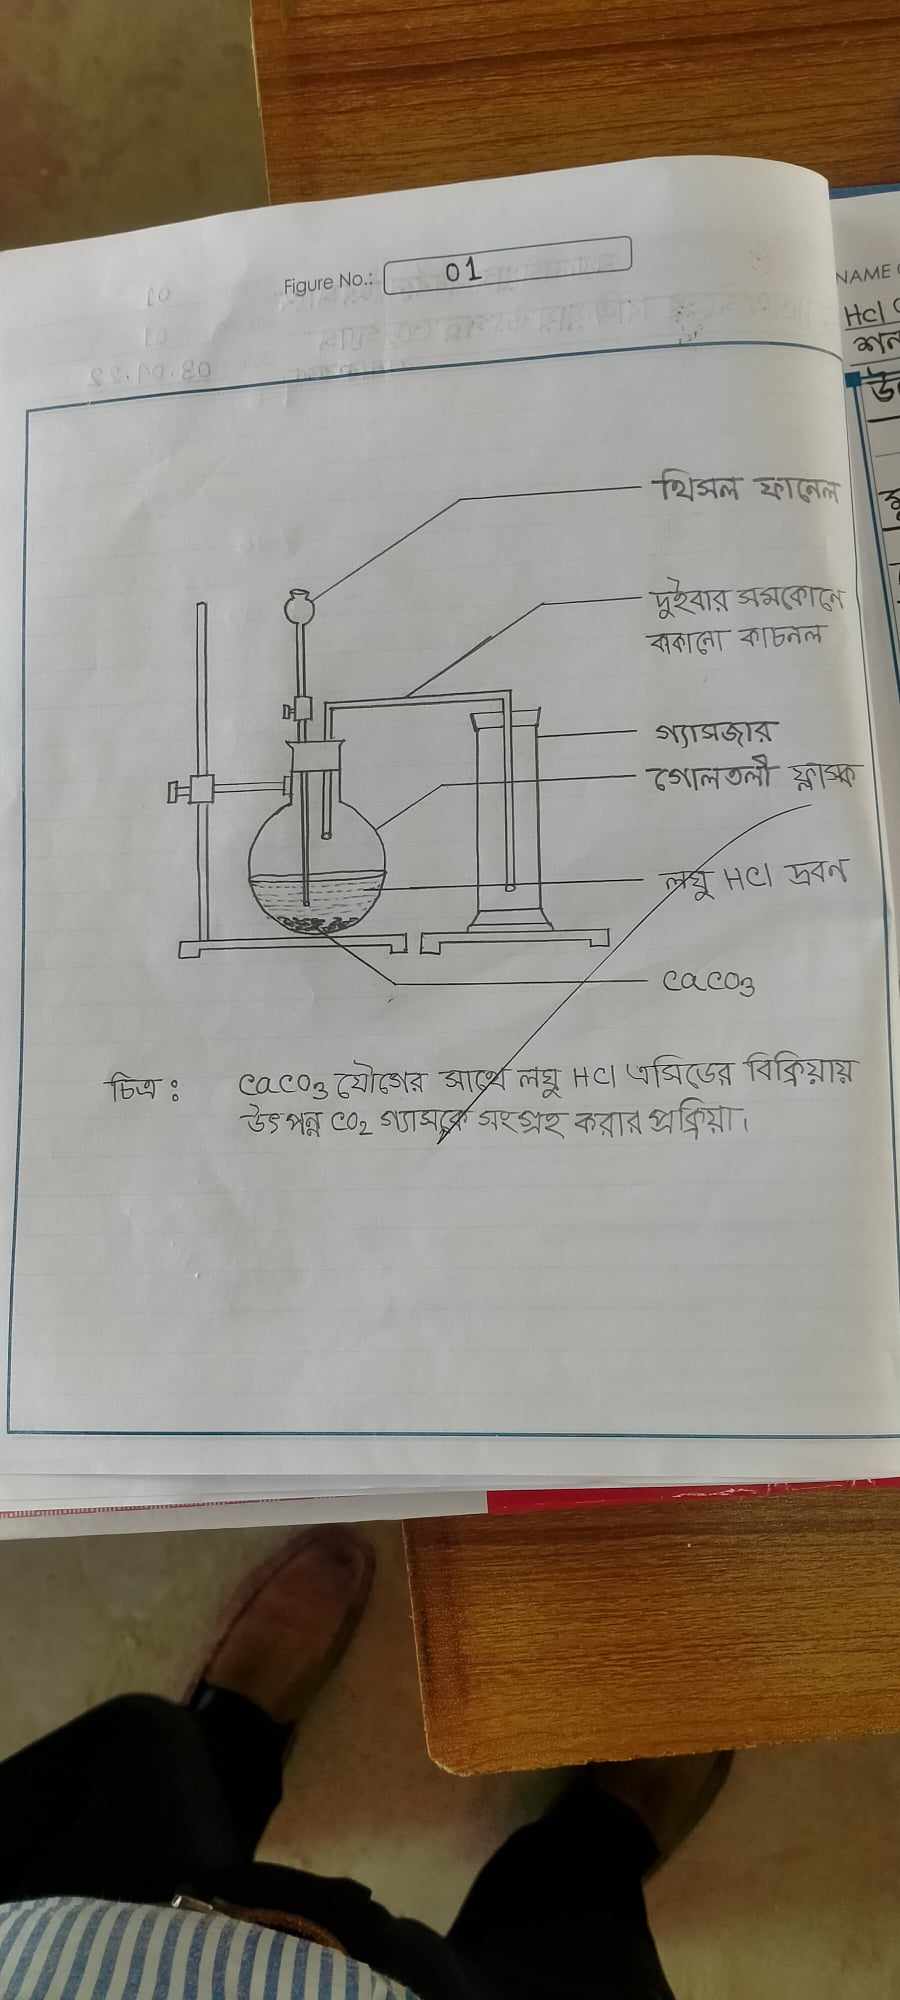 Figure No.: 01
NAME
HCl
থিসল ফানেল
দুইবার সমকোনে
বাকানো কাচনল
গ্যাসজার
গোলতলী ফ্লাস্ক
লঘু HCl দ্রবন
CaCO3
চিত্র : CaCO3 যৌগের সাথে লঘু HCl এসিডের বিক্রিয়ায়
উৎপন্ন CO2 গ্যাসকে সংগ্রহ করার প্রক্রিয়া।